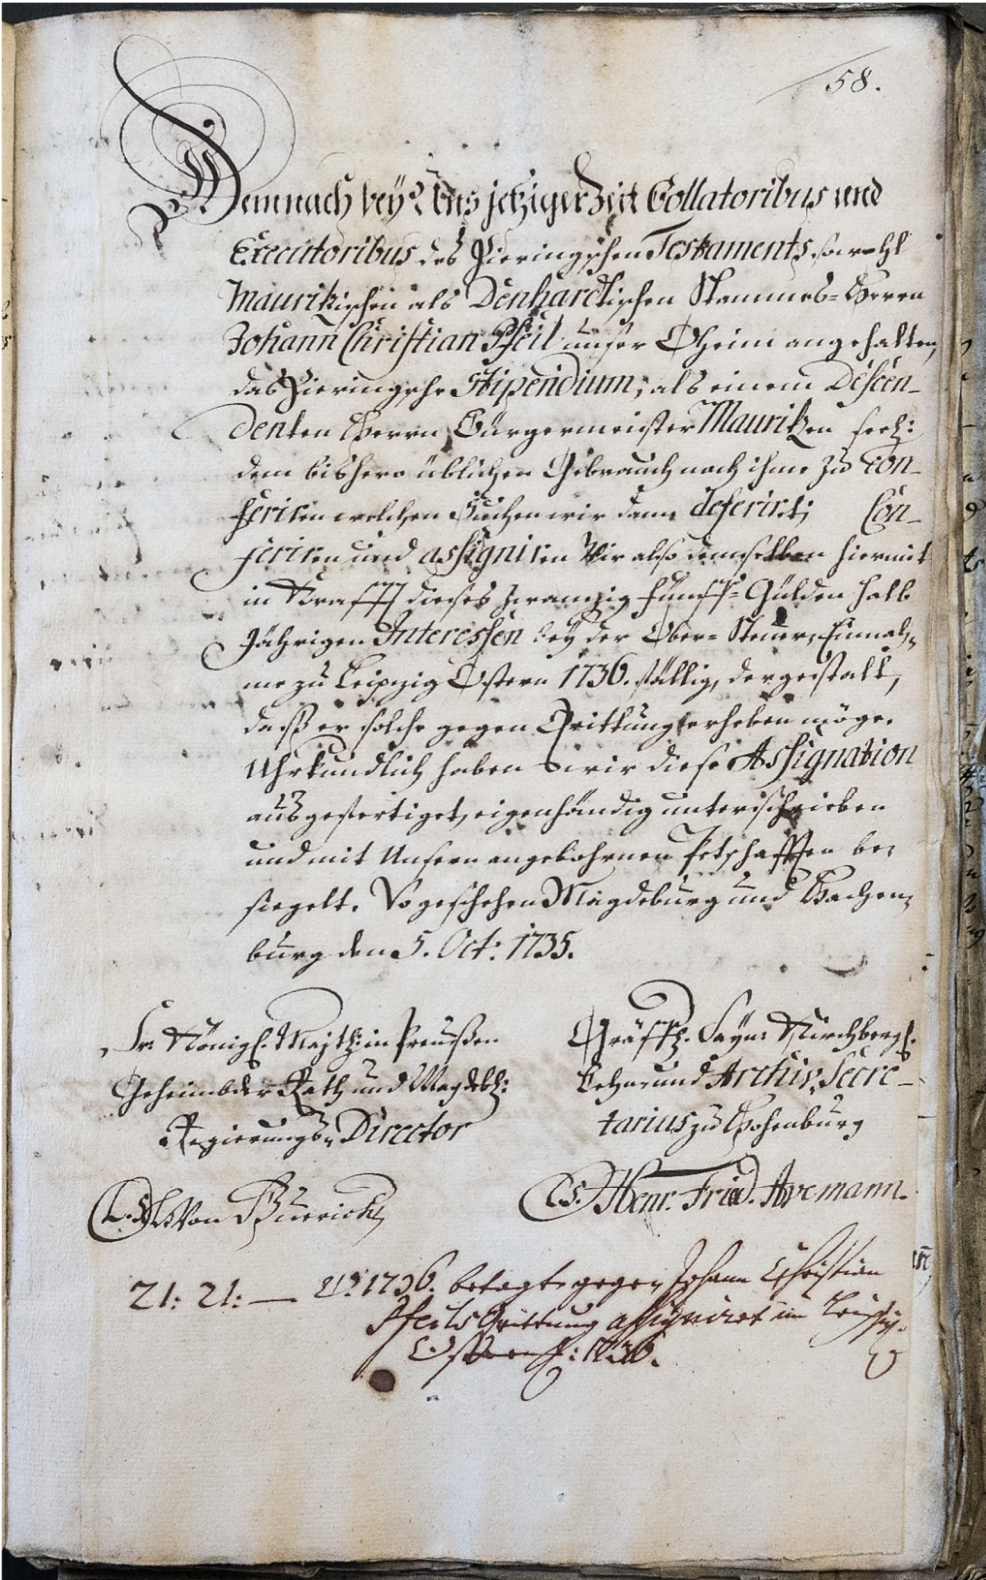 58.
Demnach bey Uns jetziger Zeit Collatoribus und
Executoribus des Pieringschen Testaments, sowohl
Mauritzischen als Denhardtischen Stammes-Herren
Johann Christian Pfeil unser Oheim angehalten,
das Pieringsche Stipendium, als einem Descen-
denten Herrn Bürgermeister Mauritzen seel:
dem bishero üblichen Gebrauch nach ihme zu con-
feriren welchen Suchen wir dann deferirt; Con-
feriren und assigniren Wir also demselben hiermit
in Krafft dieses zwanzig fünff- Gülden halb
Jährigen Interessen bey der Ober-Steuer-Einnah-
me zu Leipzig Ostern 1736. fällig, dergestalt,
daß er solche gegen Qvittung erheben möge.
Uhrkundlich haben wir diese Assignation
ausgefertiget, eigenhändig unterschrieben
und mit Unsern angebohrnen Petschafften be-
siegelt. So geschehen Magdeburg und Hachen-
burg den 5. Oct: 1735.
Sr. Königl. Majth: in Preußen
Geheimbder Rath und Magdeb:
Regierungs-Director
(L.S.) von Büerick
Gräffl. Sayn- Kirchbergl.
Lehns und Archiv-Secre-
tarius zu Hohenburg
(L.S.) Henr. Frid. Avemann.
21: 21: — 1736. betagt gegen Johann Christian
Pfeils Qvittung assigniret im Leipzig.
Ostern 1736.